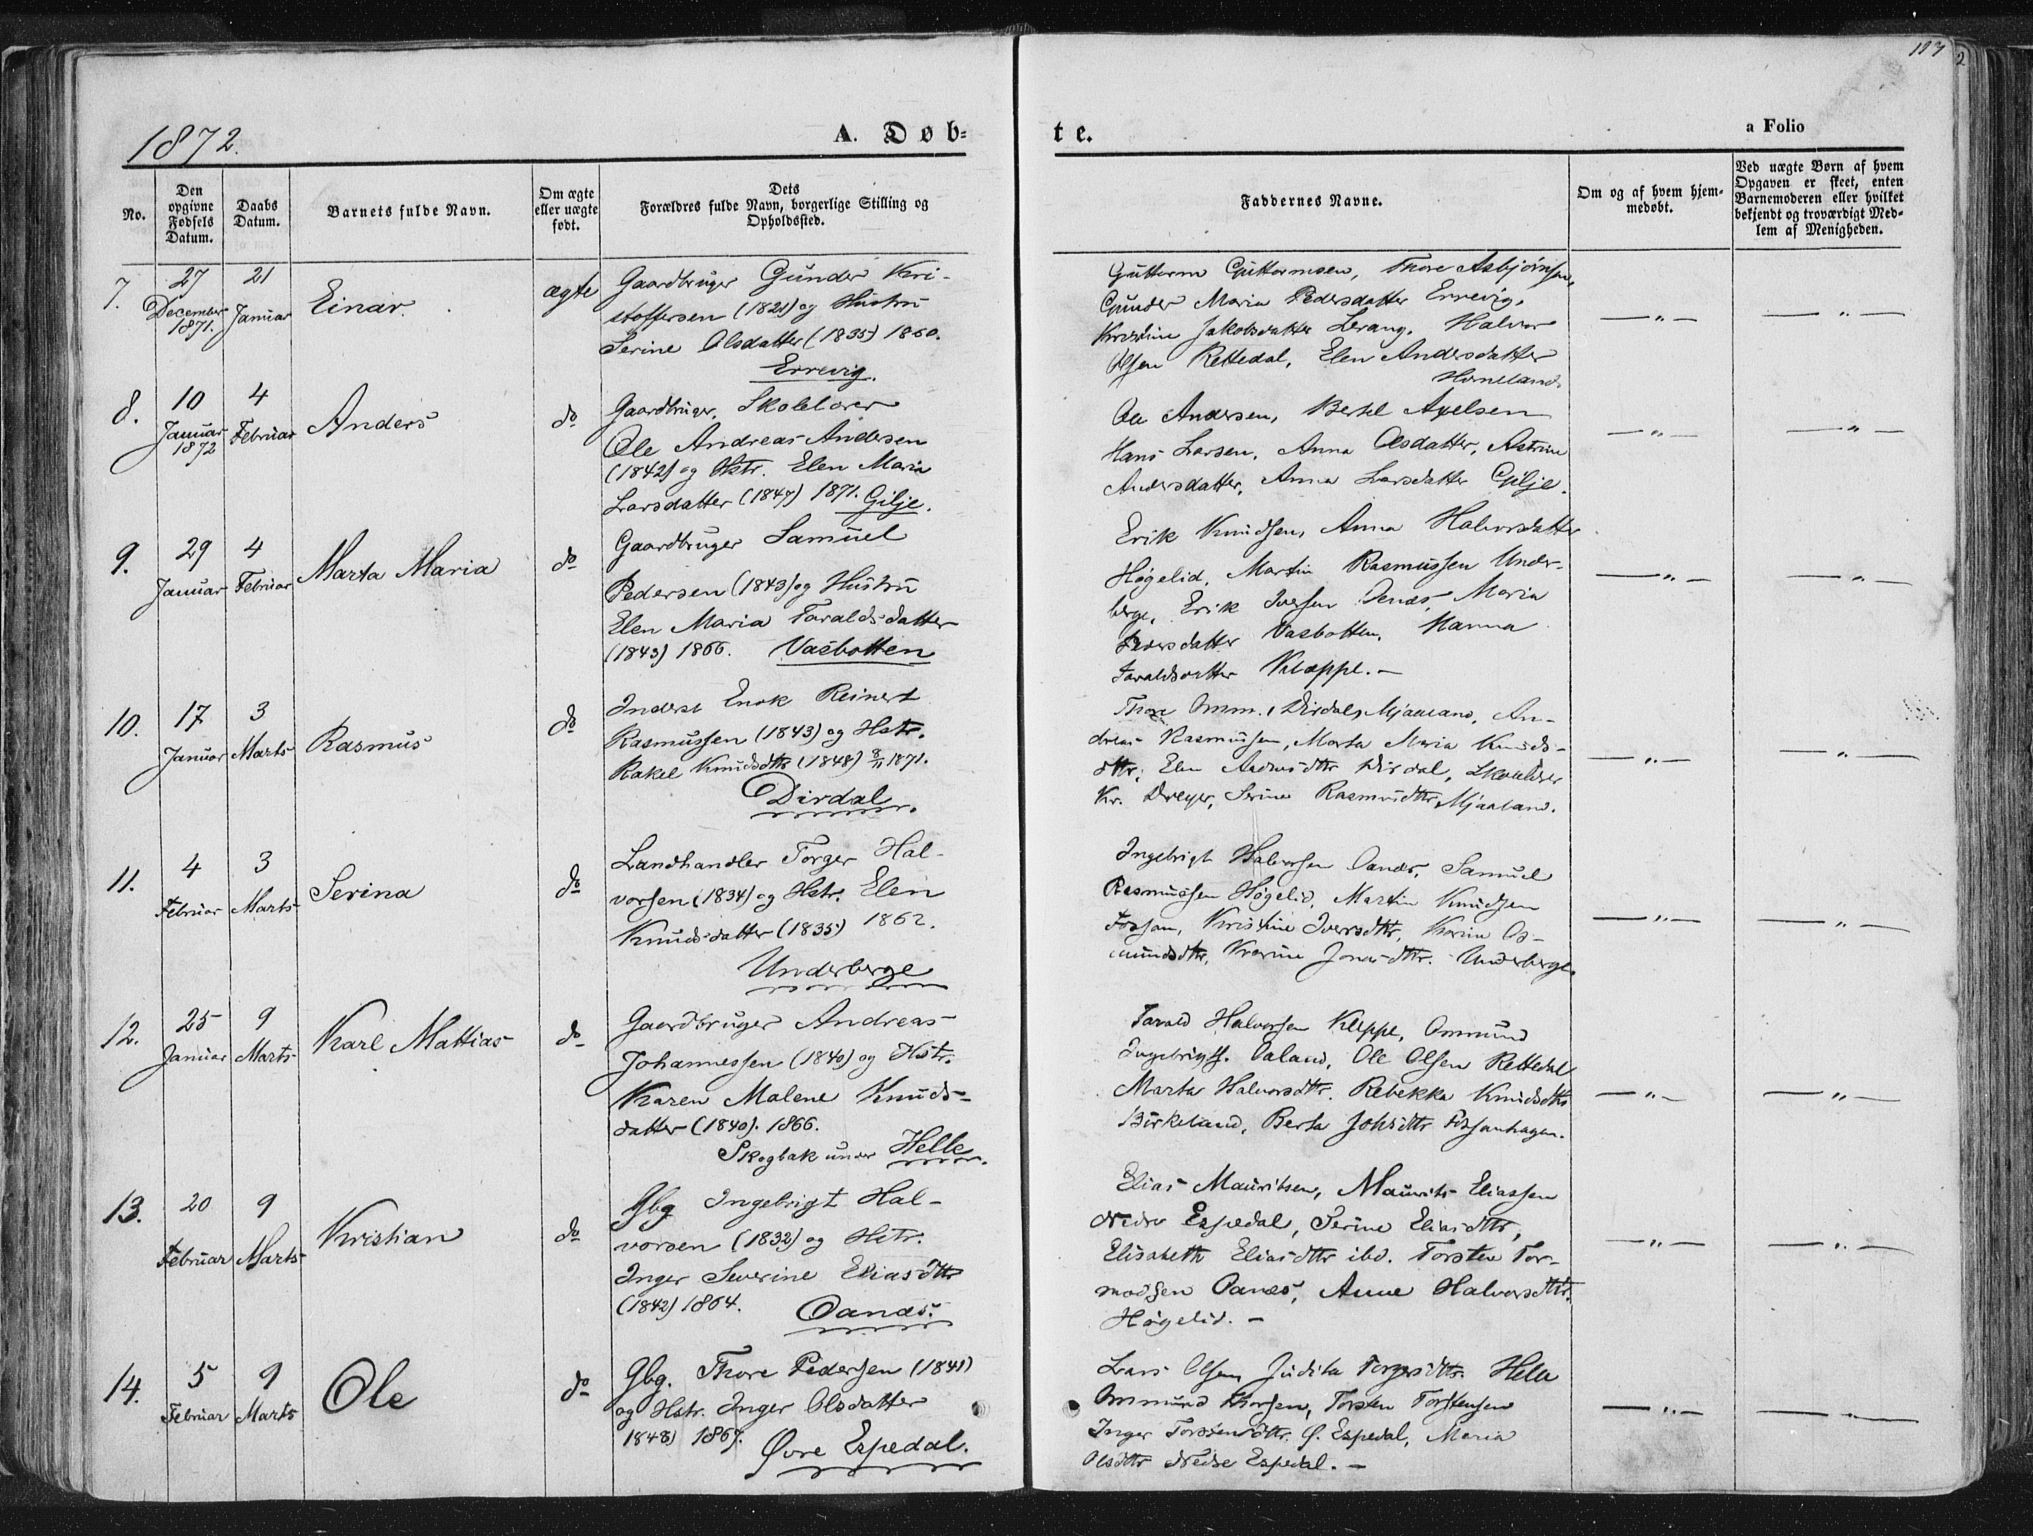 1872.
A. Døb-
te.
a Folio
117
2
No.
Den
opgivne
Fødsels
Datum.
Daabs
Datum.
Barnets fulde Navn.
Om ægte
eller uægte
født.
Dets
Forældres fulde Navn, borgerlige Stilling og
Opholdssted.
Faddernes Navne.
Om og af hvem hjem-
medøbt.
Ved uægte Børn af hvem
Opgaven er skeet, enten
Barnemoderen eller hvilket
bekjendt og troværdigt Med-
lem af Menigheden.
7.
27
December
1871.
21
Januar
Einar.
ægte
Gaardbruger Gunder Kri-
stoffersen (1821) og Hustru
Serine Olsdatter (1835) 1860.
Errevig.
Guttorm Guttormsen, Thore Asbjørnsen,
Gunder Maria Pedersdatter Errevig,
Kristine Jakobsdatter Lerang, Halvor
Olsen Rettedal, Elen Andersdatter
Horneland.
— " —
— " —
8.
10
Januar
1872
4
Februar
Anders
do
Gaardbruger, Skolelærer
Ole Andreas Andersen
(1842) og Hstr. Elen Maria
Larsdatter (1847) 1871. Gilje.
Ole Andersen, Bertel Axelsen
Hans Larsen, Anna Olsdatter, Astrine
Andersdatter, Anna Larsdatter Gilje.
— " —
— " —
9.
29
Januar
4
Februar
Marta Maria
do
Gaardbruger Samuel
Pedersen (1843) og Hustru
Elen Maria Taraldsdatter
(1843) 1866. Vasbotten
Erik Knudsen, Anna Halvorsdatter
Høgelid, Martin Rasmussen Under-
berge, Erik Iversen Oanæs, Maria
Pedersdatter Vasbotten, Hanna
Taraldsdatter Kleppe. —
— " —
— " —
10.
17
Januar
3
Marts
Rasmus
do
Inderst Enok Reinert
Rasmussen (1843) og Hstr.
Rakel Knudsdttr (1848) 8/11 1871.
Dirdal.
Thore Omm. Dirdal, Mjaaland, An-
dreas Rasmussen, Marta Maria Knuds-
dttr, Elen Dirdal,
Kr. Dreyer, Serine Rasmusdttr Mjaaland.
— " —
— " —
11.
4
Februar
3
Marts
Serina
do
Landhandler Torger Hal-
vorsen (1834) og Hstr. Elen
Knudsdatter (1835) 1862.
Underberge
Ingebrigt Halvorsen Oanæs, Samuel
Rasmussen Høgelid, Martin Knudsen
Fossan, Kristine Iversdttr, Karine Os-
mundsdttr, Jonasdttr. Underberge.
— " —
— " —
12.
25
Januar
9
Marts
Karl Mattias
do
Gaardbruger Andreas
Johannessen (1840) og Hstr.
Karen Malene Knuds-
datter (1840). 1866.
Skogbak under Helle.
Tarald Halvorsen Kleppe, Ommund
Ingebrigts. Oaland, Ole Olsen Rettedal
Marta Halvorsdttr. Rebekka Knudsdttr
Birkeland, Berta Johsdttr Fossanhagen.
— " —
— " —
13.
20
Februar
9
Marts
Kristian
do
Gbg Ingebrigt Hal-
vorsen (1832) og Hstr.
Inger Severine Eliasdttr
(1842) 1864. Oanæs.
Elias Mauritsen, Maurits Eliassen
Nedre Espedal, Serine Eliasdttr,
Elisabeth Eliasdttr ibd. Torsten Tor-
modsen Oanæs, Anne Halvorsdttr.
Høgelid. —
— " —
— " —
14.
5
Februar
9
Marts
Ole
do
Gbg. Thore Pedersen (1841)
og Hstr. Inger Olsdatter
1848) 1867.
Øvre Espedal.
Lars Olsen, Judita Torgersdttr. Helle
Ommund Thorsen, Torsten Torstensen
Inger Torstensdttr. Ø. Espedal, Maria
Olsdttr Nedre Espedal. —
— " —
— " —